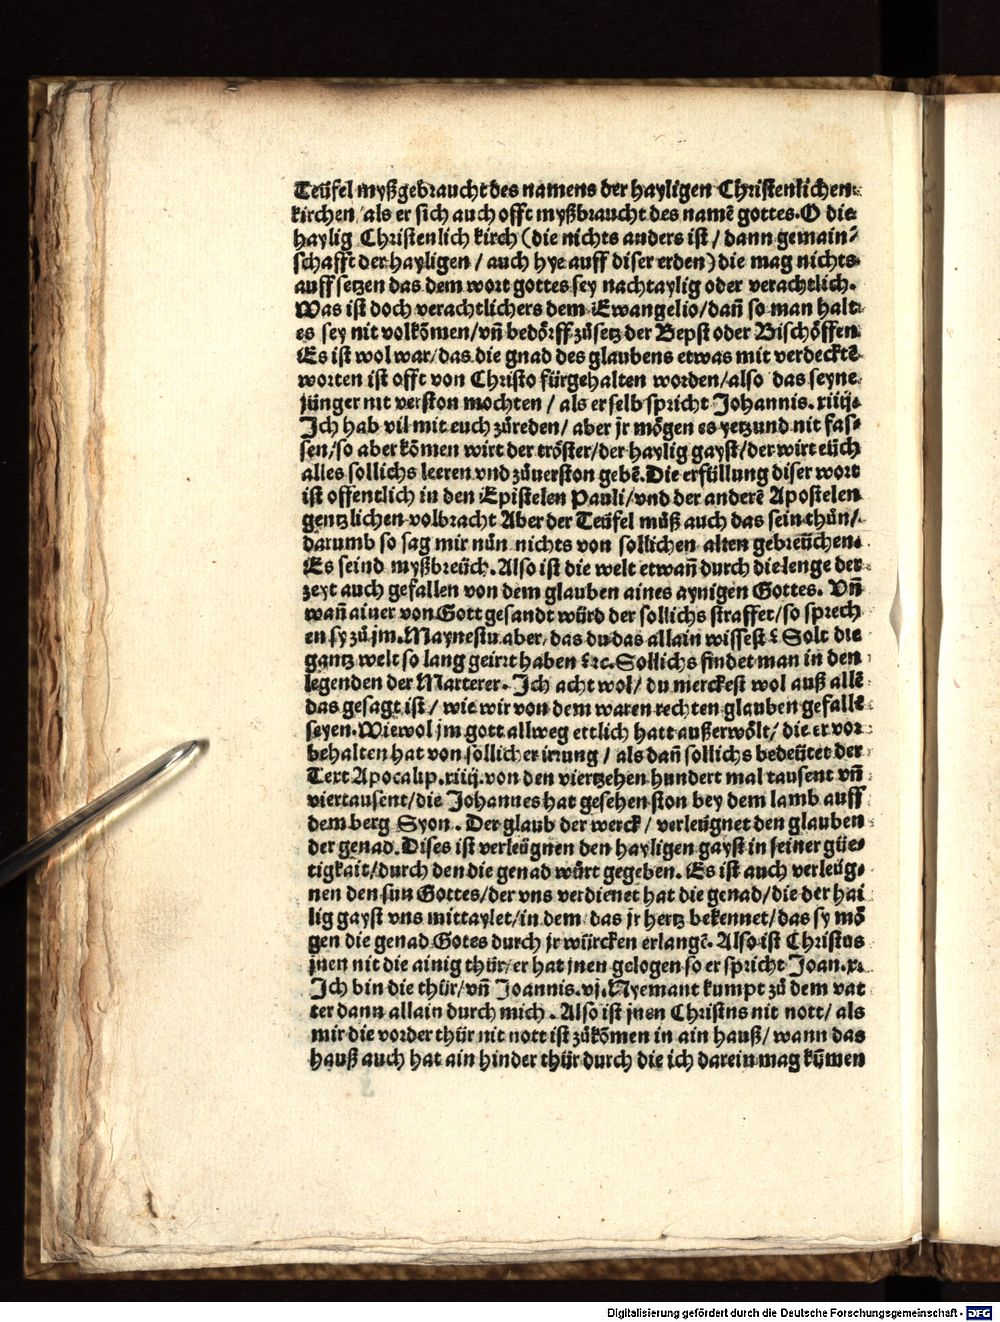 Teüfel myßgebraucht des namens der hayligen Christenlichen
kirchen / als er sich auch offt myßbraucht des namē gottes. O die
haylig Christenlich kirch (die nichts anders ist / dann gemain⸗
schafft der hayligen / auch hye auff diser erden) die mag nichts
auff setzen das dem wort gottes sey nachtaylig oder verachtlich.
Was ist doch verachtlichers dem Ewangelio / dañ so man halt
es sey nit volkōmen / vñ bedörff zůsetz der Bepst oder Bischöffen
Es ist wol war / das die gnad des glaubens etwas mit verdecktē
worten ist offt von Christo fürgehalten worden / also das seyne
jünger nit verston mochten / als er selb spricht Johannis. xiiij.
Ich hab vil mit euch zůreden / aber jr mögen es yetzund nit fas⸗
sen / so aber kōmen wirt der tröster / der haylig gayst / der wirt eüch
alles sollichs leeren vnd zůuerston gebē. Die erfüllung diser wort
ist offentlich in den Epistelen Pauli / vnd der anderē Apostelen
gentzlichen volbracht Aber der Teüfel můß auch das sein thůn /
darumb so sag mir nůn nichts von sollichen alten gebreüchen.
Es seind myßbreüch. Also ist die welt etwañ durch die lenge der
zeyt auch gefallen von dem glauben aines aynigen Gottes. Vñ
wañ ainer von Gott gesandt würd der sollichs straffet / so sprech
en sy zů jm. Maynestu aber / das du das allain wissest? Solt die
gantz welt so lang geirrt haben? ⁊c. Sollichs findet man in den
legenden der Marterer. Ich acht wol / du merckest wol auß allē
das gesagt ist / wie wir von dem waren rechten glauben gefallē
seyen. Wiewol jm gott allweg ettlich hatt außerwölt / die er vor
behalten hat von sollicher irrung / als dañ sollichs bedeütet der
Text Apocalip. xiiij. von den viertzehen hundert mal tausent vñ
viertausent / die Johannes hat gesehen ston bey dem lamb auff
dem berg Syon. Der glaub der werck / verleügnet den glauben
der genad. Dises ist verleügnen den hayligen gayst in seiner güe⸗
tigkait / durch den die genad würt gegeben. Es ist auch verleüg⸗
nen den sun Gottes / der vns verdienet hat die genad / die der hai
lig gayst vns mittaylet / in dem das jr hertz bekennet / das sy mö
gen die genad Gotes durch jr würcken erlangē. Also ist Christus
jnen nit die ainig thür / er hat jnen gelogen so er spricht Joan. x.
Ich bin die thür / vñ Joannis. vj. Nyemant kumpt zů dem vat
ter dann allain durch mich. Also ist jnen Christns nit nott / als
mir die vorder thür nit nott ist zůkōmen in ain hauß / wann das
hauß auch hat ain hinder thür durch die ich darein mag kūmen
Digitalisierung gefördert durch die Deutsche Forschungsgemeinschaft - DFG